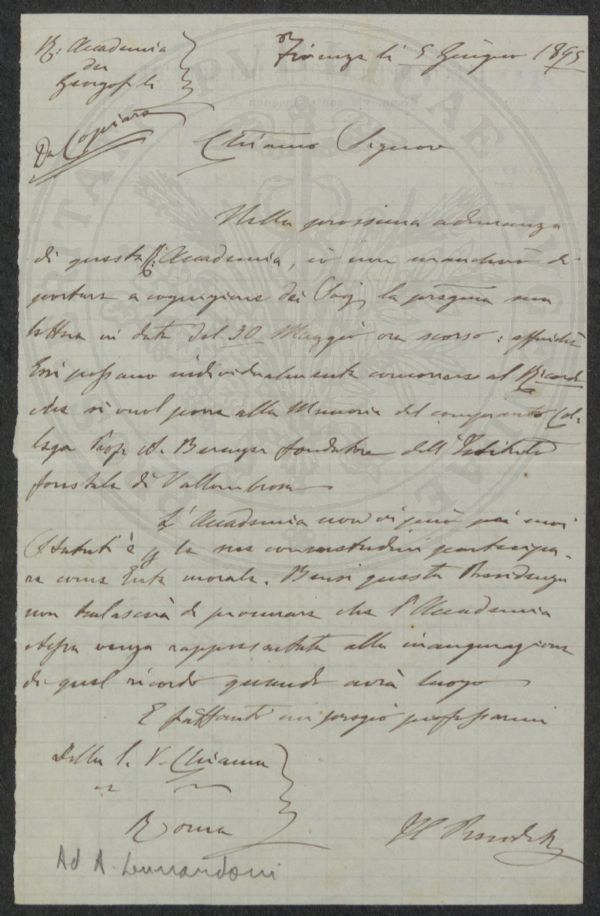 R. Accademia
dei
Georgofili
Firenze li 5 Giugno 1895
Da Copiare
Chiarmo Signore
Nella prossima adunanza
di questa R. Accademia, io non mancherò di
portare a cognizione dei Soci la pregma sua
lettera in data del 30 Maggio ora scorso; affinchè
Essi possano individualmente concorrere al Ricordo
che si vuol porre alla Memoria del compianto Col-
lega Prof. A. Berenger fondatore dell'Istituto
forestale di Vallombrosa
L'Accademia non vi può pei suoi
Statuti e p la sua consuetudini partecipa-
re come Ente morale. Bensì questa Presidenza
non tralascerà di procurare che l'Accademia
stessa venga rappresentata alla inaugurazione
di quel ricordo quando avrà luogo
E frattanto mi pregio professarmi
Della S. V. Chiarma
Roma
Il Presidte
Ad A.